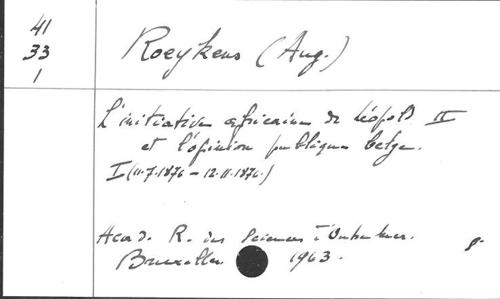 41
33
1
Roeykens (Aug.)
L'initiative africaine de Léopold II
et l'opinion publique belge.
I (11.7.1876 – 12.11.1876.)
Acad. R. des Sciences d'Outre-Mer.
Bruxelles 1963.